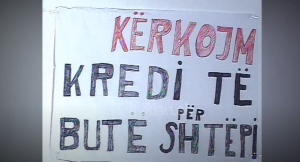 KËRKOJM
KREDI TË
BUTË PËR SHTËPI